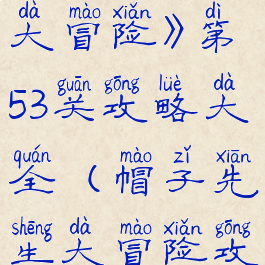 dà mào xiǎn dì
大冒险》第
guān gōng lüè dà
53关攻略大
quán mào zǐ xiān
全(帽子先
shēng dà mào xiǎn gōng
生大冒险攻